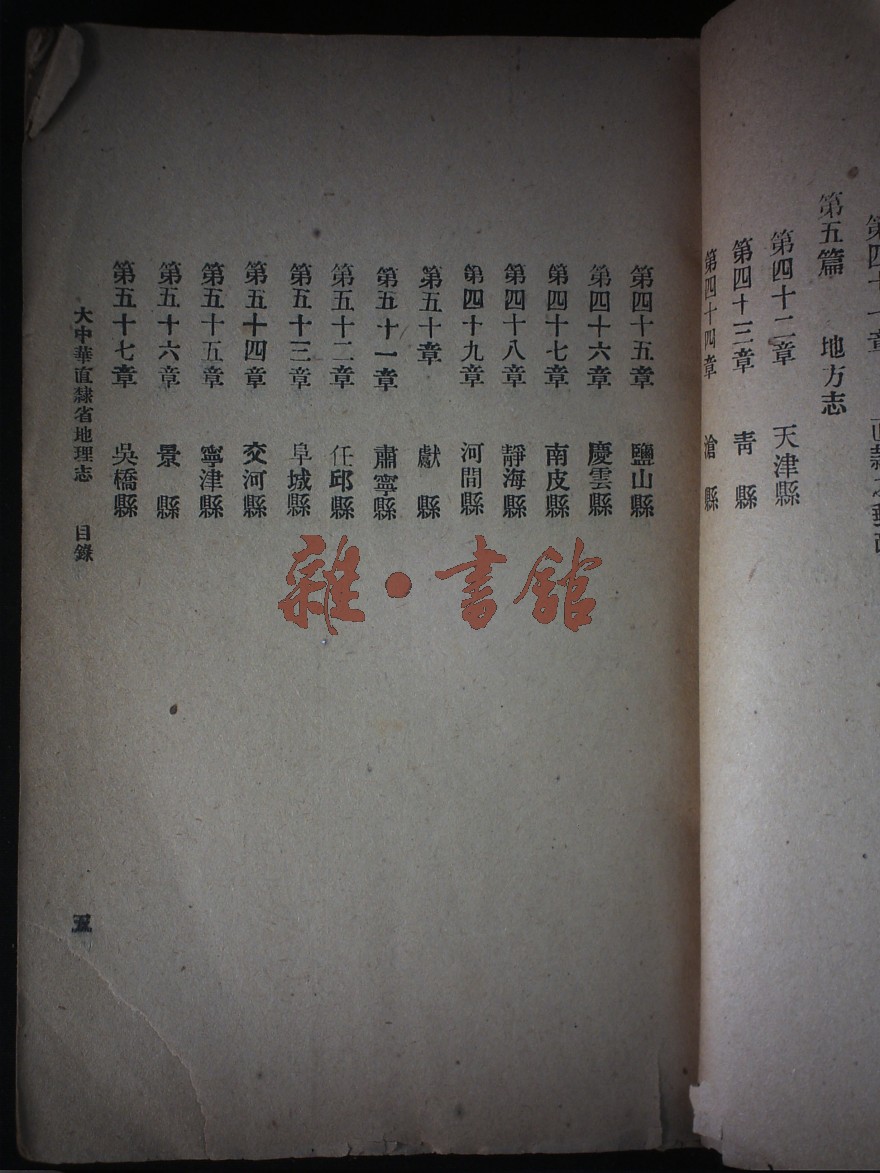 第五篇 地方志
第四十二章 天津縣
第四十三章 青縣
第四十四章 滄縣
第四十五章 鹽山縣
第四十六章 慶雲縣
第四十七章 南皮縣
第四十八章 靜海縣
第四十九章 河間縣
第五十章 獻縣
第五十一章 肅寧縣
第五十二章 任邱縣
第五十三章 阜城縣
第五十四章 交河縣
第五十五章 寧津縣
第五十六章 景縣
第五十七章 吳橋縣
大中華直隸省地理志 目錄
五
雜·書館